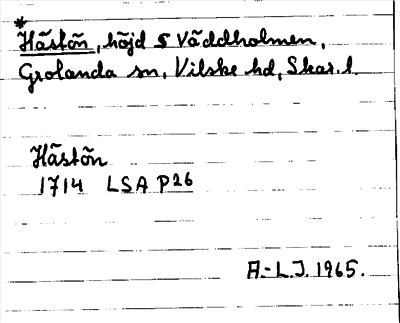 *
Hästön, höjd S Väddholmen,
Grolanda sn, Vilske hd, Skar. l.
Hästön
1714 LSA P26
A.-L.J. 1965.